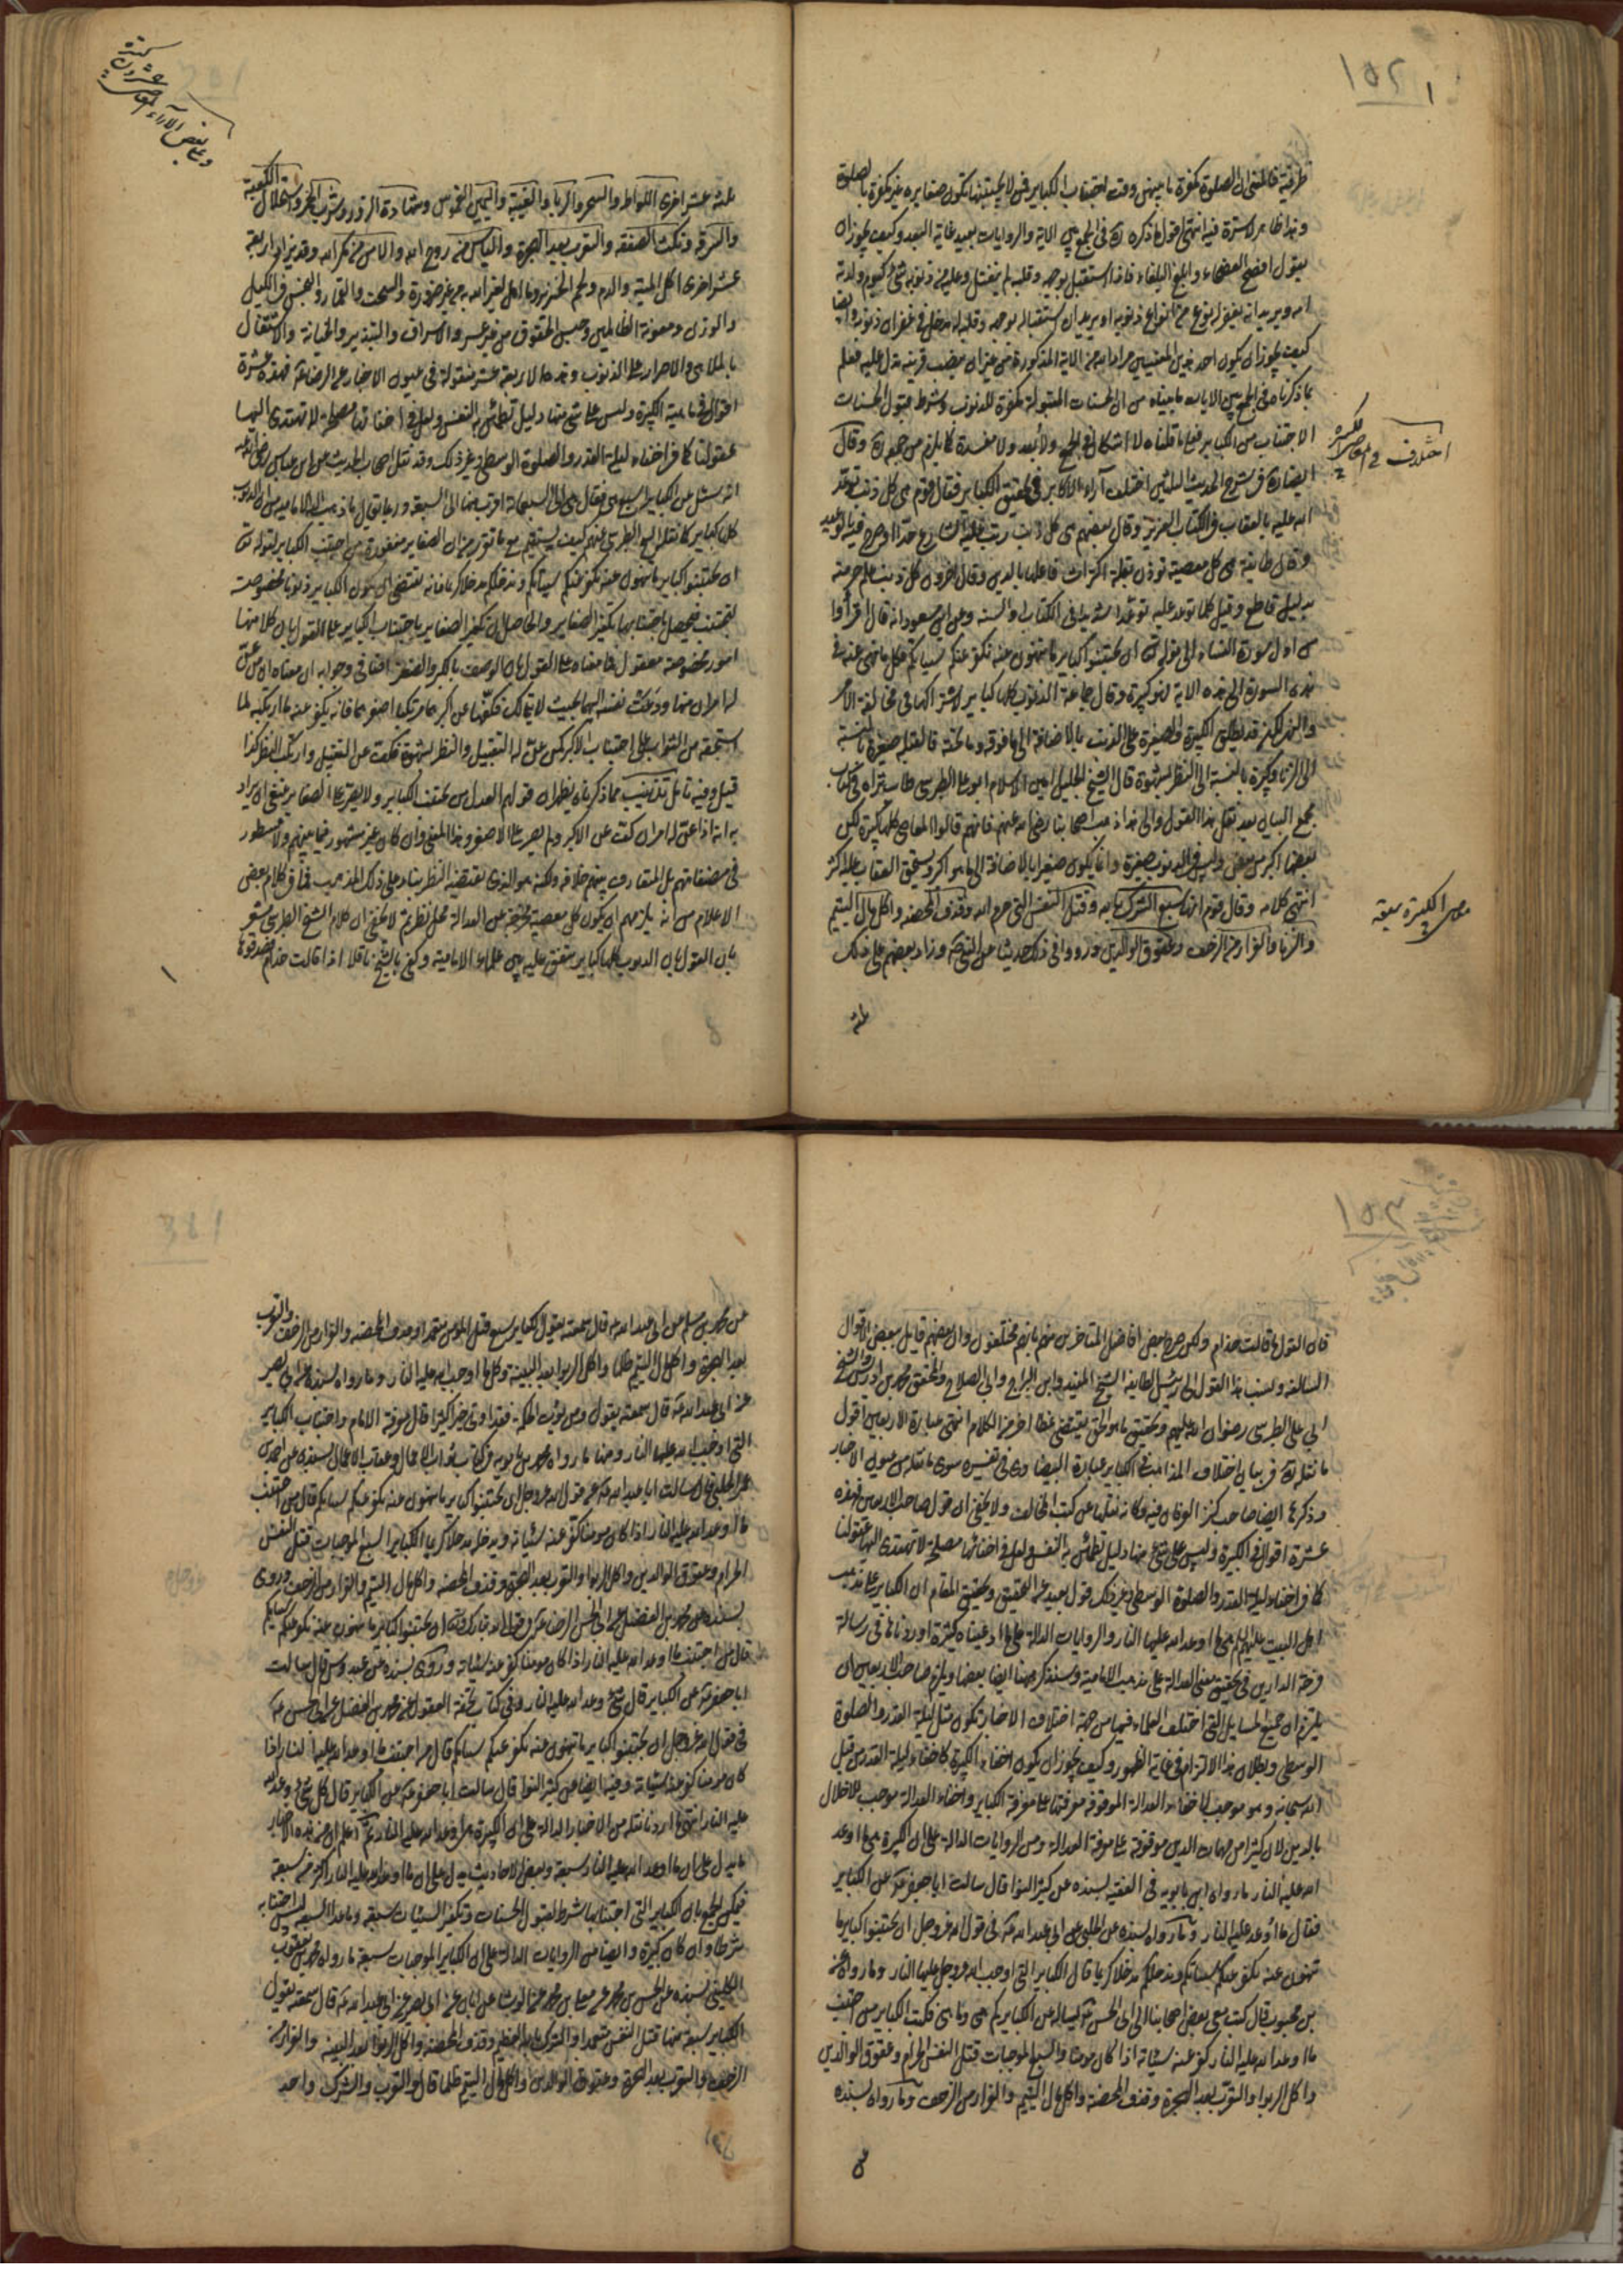 ١٥٢
ظرفية فالمعنى ان الصلوة مكفرة ما بينهن وقت اجتناب الكباير فمن لا يجتنبها يكون صغايره غير مكفرة بالصلوة
وهذا ظاهر لا سترة فيه انتهى اقول ما ذكره في الجمع بين الاية والروايات بعيد غاية البعد وكيف يجوز ان
يقول افصح الفصحاء وابلغ البلغاء فاذا استقبل بوجهه وقلبه لم ينفتل وعليه من ذنوبه شئ كيوم ولدته
امه ويريد انه يغفر له نوع من انواع ذنوبه او يريد ان استقباله بوجهه وقلبه له مدخل في غفران ذنوبه وايضا
كيف يجوز ان يكون احد هذين المعنيين مراد الله من الاية المذكورة من غير ان ينصب قرينة يدل عليه فعلم
بما ذكرناه في الجمع بين الايات ما بيناه من ان الحسنات المقبولة مكفرة للذنوب وشرط قبول الحسنات
الاجتناب من الكباير فعلى ما قلناه لا اشكال في الجمع ولا بعد ولا مفسدة كما يلزم من جمعه وقال
ايضا في شرح الحديث الثلثين اختلف آراء الاكابر في تحقيق الكباير فقال قوم هي كل ذنب توعد
الله عليه بالعقاب في الكتاب العزيز وقال بعضهم هي كل ذنب رتب عليه الشارع حدا او صرح فيه بالوعيد
وقال طائفة هي كل معصية تؤذن بقلة اكتراث فاعلها بالدين وقال اخرون كل ذنب علم حرمته
بدليل قاطع وقيل كلما توعد عليه توعدا شديدا في الكتاب والسنه وعن ابن مسعود انه قال اقرأوا
من اول سورة النساء الى قوله ان تجتنبوا كباير ما تنهون عنه نكفر عنكم سيئاتكم فكل ما نهى عنه في
هذه السورة الى هذه الاية فهو كبيرة وقال جماعة الذنوب كلها كباير لاشتراكها في مخالفة الامر
والنهي لكن قد يطلق الكبيرة والصغيرة على الذنب بالاضافة الى ما فوقه وما تحته فالقبلة صغيرة بالنسبة
الى الزنا وكبيرة بالنسبة الى النظر بشهوة قال الشيخ الجليل امين الاسلام ابو علي الطبرسي طاب ثراه في كتاب
مجمع البيان بعد نقل هذا القول والى هذا ذهب اصحابنا رضي الله عنهم فانهم قالوا المعاصي كلها كبيرة لكن
بعضها اكبر من بعض وليس في الذنوب صغيرة وانما يكون صغيرا بالاضافة الى ما هو اكبر ويستحق العقاب عليه اكثر
انتهى كلامه وقال قوم انها سبع الشرك بالله وقتل النفس التي حرم الله وقذف المحصنه واكل مال اليتيم
والزنا والفرار من الزحف وعقوق الوالدين ورووا في ذلك حديثا عن النبي وزاد بعضهم على ذلك
ثلثة
اختلاف في معنى الكبيرة
معنى الكبيرة سبعة
ثلثة عشر اخرى اللواط والسحر والربا والغيبة واليمين الغموس وشهادة الزور وشرب الخمر واستحلال الكعبة
والسرقة ونكث الصفقه والتعرب بعد الهجرة والياس من روح الله والامن من مكر الله وقد يزاد اربعة
عشر اخرى اكل الميته والدم ولحم الخنزير وما اهل لغير الله به من غير ضرورة والسحت والقمار والبخس في الكيل
والوزن ومعونة الظالمين وحبس الحقوق من غير عسر والاسراف والتبذير والخيانة والاشتغال
بالملاهي والاصرار على الذنوب وهذه الاربعة عشر منقولة في عيون الاخبار عن الرضا فهذه عشرة
اقوال في ماهية الكبيرة وليس على شئ منها دليل تطمئن به النفس ولعل في اخفائها مصلحة لا تهتدي اليها
عقولنا كما في اخفاء ليلة القدر والصلوة الوسطى وغير ذلك وقد نقل اصحاب الحديث عن ابن عباس رضي الله عنه
انه سئل عن الكباير اسبع هي فقال هي الى السبعمائة اقرب منها الى السبعة وربما يقال ما ذهب اليه الامامية من ان الذنوب
كلها كباير كما نقل الشيخ الطبرسي عنهم كيف يستقيم مع ما تقرر من ان الصغاير مغفورة من اجتنب الكباير لقوله تعالى
ان تجتنبوا كباير ما تنهون عنه نكفر عنكم سيئاتكم وندخلكم مدخلا كريما فانه يقتضي ان يكون الكباير ذنوبا مخصوصة
لتجتنب فيحصل باجتنابها تكفير الصغاير والحاصل ان تكفير الصغاير باجتناب الكباير على القول بان كلا منها
امور مخصوصة معقول فما معناه على القول بان الوصف بالكبر والصغر اضافي وجوابه ان معناه ان من عن
له امران منها ودعت نفسه اليهما بحيث لا يتمالك فكفها عن اكبرهما مرتكبا اصغرهما فانه يكفر عنه ما ارتكبه لما
استحقه من الثواب على اجتناب الاكبر كمن عن له التقبيل والنظر بشهوة فكف عن التقبيل وارتكب النظر كذا
قيل وفيه تامل تذنيب مما ذكرناه يظهر ان قولهم العدل من يجتنب الكباير ولا يصر على الصغاير ينبغي ان يراد
به انه اذا عن له امران كف عن الاكبر ولم يصر على الاصغر وهذا المعنى وان كان غير مشهور فيما بينهم ولا مسطور
في مصنفاتهم بل المتعارف بينهم خلافه ولكنه هو الذي يقتضيه النظر بناء على ذلك المذهب فما في كلام بعض
الاعلام من انه يلزمهم ان يكون كل معصية مخرجة عن العدالة محل نظر ثم لا يخفى ان كلام الشيخ الطبرسي مشعر
بان القول بان الذنوب كلها كباير متفق عليه بين علماء الامامية وكفى بالشيخ ناقلا اذا قالت حذام فصدقوها
وعلى بعض الآراء
١٥٣
فان القول ما قالت حذام ولكن صرح بعض افاضل المتاخرين منهم بانهم مختلفون وان بعضهم قايل ببعض الاقوال
السالفه ونسب هذا القول الى رئيس الطايفه الشيخ المفيد وابن البراج وابي الصلاح والمحقق محمد بن ادريس والشيخ
ابي علي الطبرسي رضوان الله عليهم وتحقيق ما هو الحق يقتضي نمطا اخر من الكلام انتهى عبارة الاربعين اقول
ما نقله في بيان اختلاف المذاهب في الكباير عبارة البيضاوي في تفسيره سوى ما نقله من عيون الاخبار
وذكرها ايضا صاحب كنز العرفان فيه وكانه نقلها عن كتب المخالف ولا يخفى ان قول صاحب الاربعين فهذه
عشرة اقوال في الكبيرة وليس على شئ منها دليل تطمئن به النفس ولعل في اخفائها مصلحة لا تهتدي اليها عقولنا
كما في اخفاء ليلة القدر والصلوة الوسطى وغير ذلك قول بعيد عن التحقيق وتحقيق المقام ان الكباير على مذهب
اهل البيت عليهم السلام هي ما اوعد الله عليها النار والروايات الدالة على ما ادعيناه كثيرة اوردناها في رسالة
فرحة الدارين في تحقيق معنى العدالة على مذهب الامامية وسنذكر ههنا ايضا بعضها ويلزم صاحب الاربعين ان
يلتزم ان جميع المسايل التي اختلف العلماء فيها من جهة اختلاف الاخبار تكون مثل ليلة القدر والصلوة
الوسطى وبطلان هذا الالتزام في غاية الظهور وكيف يجوز ان يكون اخفاء الكبيرة كاخفاء ليلة القدر من قبل
الله سبحانه وهو موجب لاخفاء العدالة الموقوفة معرفتها على معرفة الكباير واخفاء العدالة موجب للاخلال
بالدين لان كثيرا من مهمات الدين موقوفة على معرفة العدالة ومن الروايات الدالة على ان الكبيرة هي ما اوعد
الله عليه النار ما رواه ابن بابويه في الفقيه بسنده عن كثير النوا قال سالت ابا جعفر عن الكباير
فقال ما اوعد عليه النار وما رواه بسنده عن الحلبي عن ابي عبد الله في قول الله عز وجل ان تجتنبوا كباير ما
تنهون عنه نكفر عنكم سيئاتكم وندخلكم مدخلا كريما قال الكباير التي اوجب الله عز وجل عليها النار وما رواه عن
بن محبوب قال كتب معي بعض اصحابنا الى ابي الحسن يساله عن الكباير كم هي وما هي فكتب الكباير من اجتنب
ما اوعد الله عليه النار كفر عنه سيئاته اذا كان مؤمنا والسبع الموجبات قتل النفس الحرام وعقوق الوالدين
واكل الربوا والتعرب بعد الهجرة وقذف المحصنة واكل مال اليتيم والفرار من الزحف وما رواه بسنده
عن
عن محمد بن مسلم عن ابي عبد الله قال سمعته يقول الكباير سبع قتل المؤمن متعمدا وقذف المحصنه والفرار من الزحف والتعرب
بعد الهجرة واكل مال اليتيم ظلما واكل الربوا بعد البينة وكل ما اوجب الله عليه النار وما رواه بسنده عن ابي بصير
عن ابي عبد الله قال سمعته يقول ومن يؤت الحكمة فقد اوتي خيرا كثيرا قال معرفة الامام واجتناب الكباير
التي اوجب الله عليها النار ومنها ما رواه محمد بن بابويه في كتاب ثواب الاعمال وعقاب الاعمال بسنده عن احمد بن
عمر الحلبي قال سالت ابا عبد الله عن قول الله عز وجل ان تجتنبوا كباير ما تنهون عنه نكفر عنكم سيئاتكم قال من اجتنب
ما اوعد الله عليه النار اذا كان مؤمنا كفر عنه سيئاته ويدخله مدخلا كريما والكباير السبع الموجبات قتل النفس
الحرام وعقوق الوالدين واكل الربوا والتعرب بعد الهجرة وقذف المحصنه واكل مال اليتيم والفرار من الزحف وروى
بسنده عن محمد بن الفضيل عن ابي الحسن الرضا في قول الله تبارك وتعالى ان تجتنبوا كباير ما تنهون عنه نكفر عنكم سيئاتكم
قال من اجتنب ما اوعد الله عليه النار اذا كان مؤمنا كفر عنه سيئاته وروى بسنده عن عباد بن كثير قال سالت
ابا جعفر عن الكباير قال كل شئ وعد الله عليه النار وفي كتاب تحفة العقول عن محمد بن الفضيل عن ابي الحسن
في قول الله عز وجل ان تجتنبوا كباير ما تنهون عنه نكفر عنكم سيئاتكم قال من اجتنب ما اوعد الله عليه النار اذا
كان مؤمنا كفر عنه سيئاته وفيه ايضا عن كثير النوا قال سالت ابا جعفر عن الكباير قال كل شئ وعد الله
عليه النار انتهى ما اردنا نقله من الاخبار الدالة على ان الكبيرة هي ما وعد الله عليه النار ثم اعلم ان من هذه الاخبار
ما يدل على ان ما اوعد الله عليه النار سبعة وبعض الاحاديث يدل على ان ما اوعد الله عليه النار اكثر من سبعة
فيمكن الجمع بان الكباير التي اجتنابها شرط لقبول الحسنات وتكفير السيئات سبعة وما عدا السبعة ليس اجتنابه
شرطا وان كان كبيرة وايضا من الروايات الدالة على ان الكباير الموجبات سبعة ما رواه محمد بن يعقوب
الكليني بسنده عن الحسين بن محمد عن معلى بن محمد عن الوشا عن ابان عن ابي بصير عن ابي عبد الله قال سمعته يقول
الكباير سبعة منها قتل النفس متعمدا والشرك بالله العظيم وقذف المحصنه واكل الربوا بعد البينه والفرار من
الزحف والتعرب بعد الهجرة وعقوق الوالدين واكل مال اليتيم ظلما قال والتعرب والشرك واحد